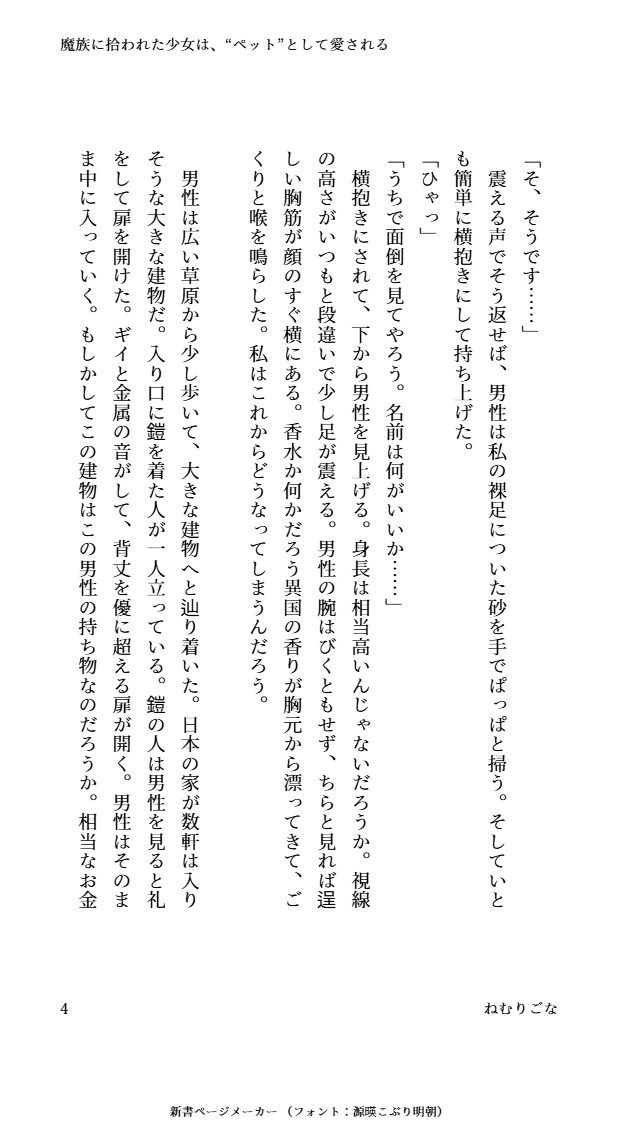 魔族に拾われた少女は、“ペット”として愛される
「そ、そうです……」
震える声でそう返せば、男性は私の裸足についた砂を手でぱっぱと掃う。そしていと
も簡単に横抱きにして持ち上げた。
「ひゃっ」
「うちで面倒を見てやろう。名前は何がいいか……」
横抱きにされて、下から男性を見上げる。身長は相当高いんじゃないだろうか。視線
の高さがいつもと段違いで少し足が震える。男性の腕はびくともせず、ちらと見れば逞
しい胸筋が顔のすぐ横にある。香水か何かだろう異国の香りが胸元から漂ってきて、ご
くりと喉を鳴らした。私はこれからどうなってしまうんだろう。
男性は広い草原から少し歩いて、大きな建物へと辿り着いた。日本の家が数軒は入り
そうな大きな建物だ。入り口に鎧を着た人が一人立っている。鎧の人は男性を見ると礼
をして扉を開けた。ギイと金属の音がして、背丈を優に超える扉が開く。男性はそのま
ま中に入っていく。もしかしてこの建物はこの男性の持ち物なのだろうか。相当なお金
ねむりごな
4
新書ページメーカー（フォント：源暎こぶり明朝）